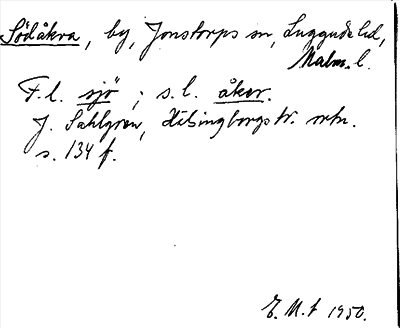 Södåkra, by, Jonstorps sn, Luggude hd,
Malm. l.
F.l. sjö; s.l. åker.
J. Sahlgren, Hälsingborgstr. ortn.
s. 134 f.
E. M.t 1950.